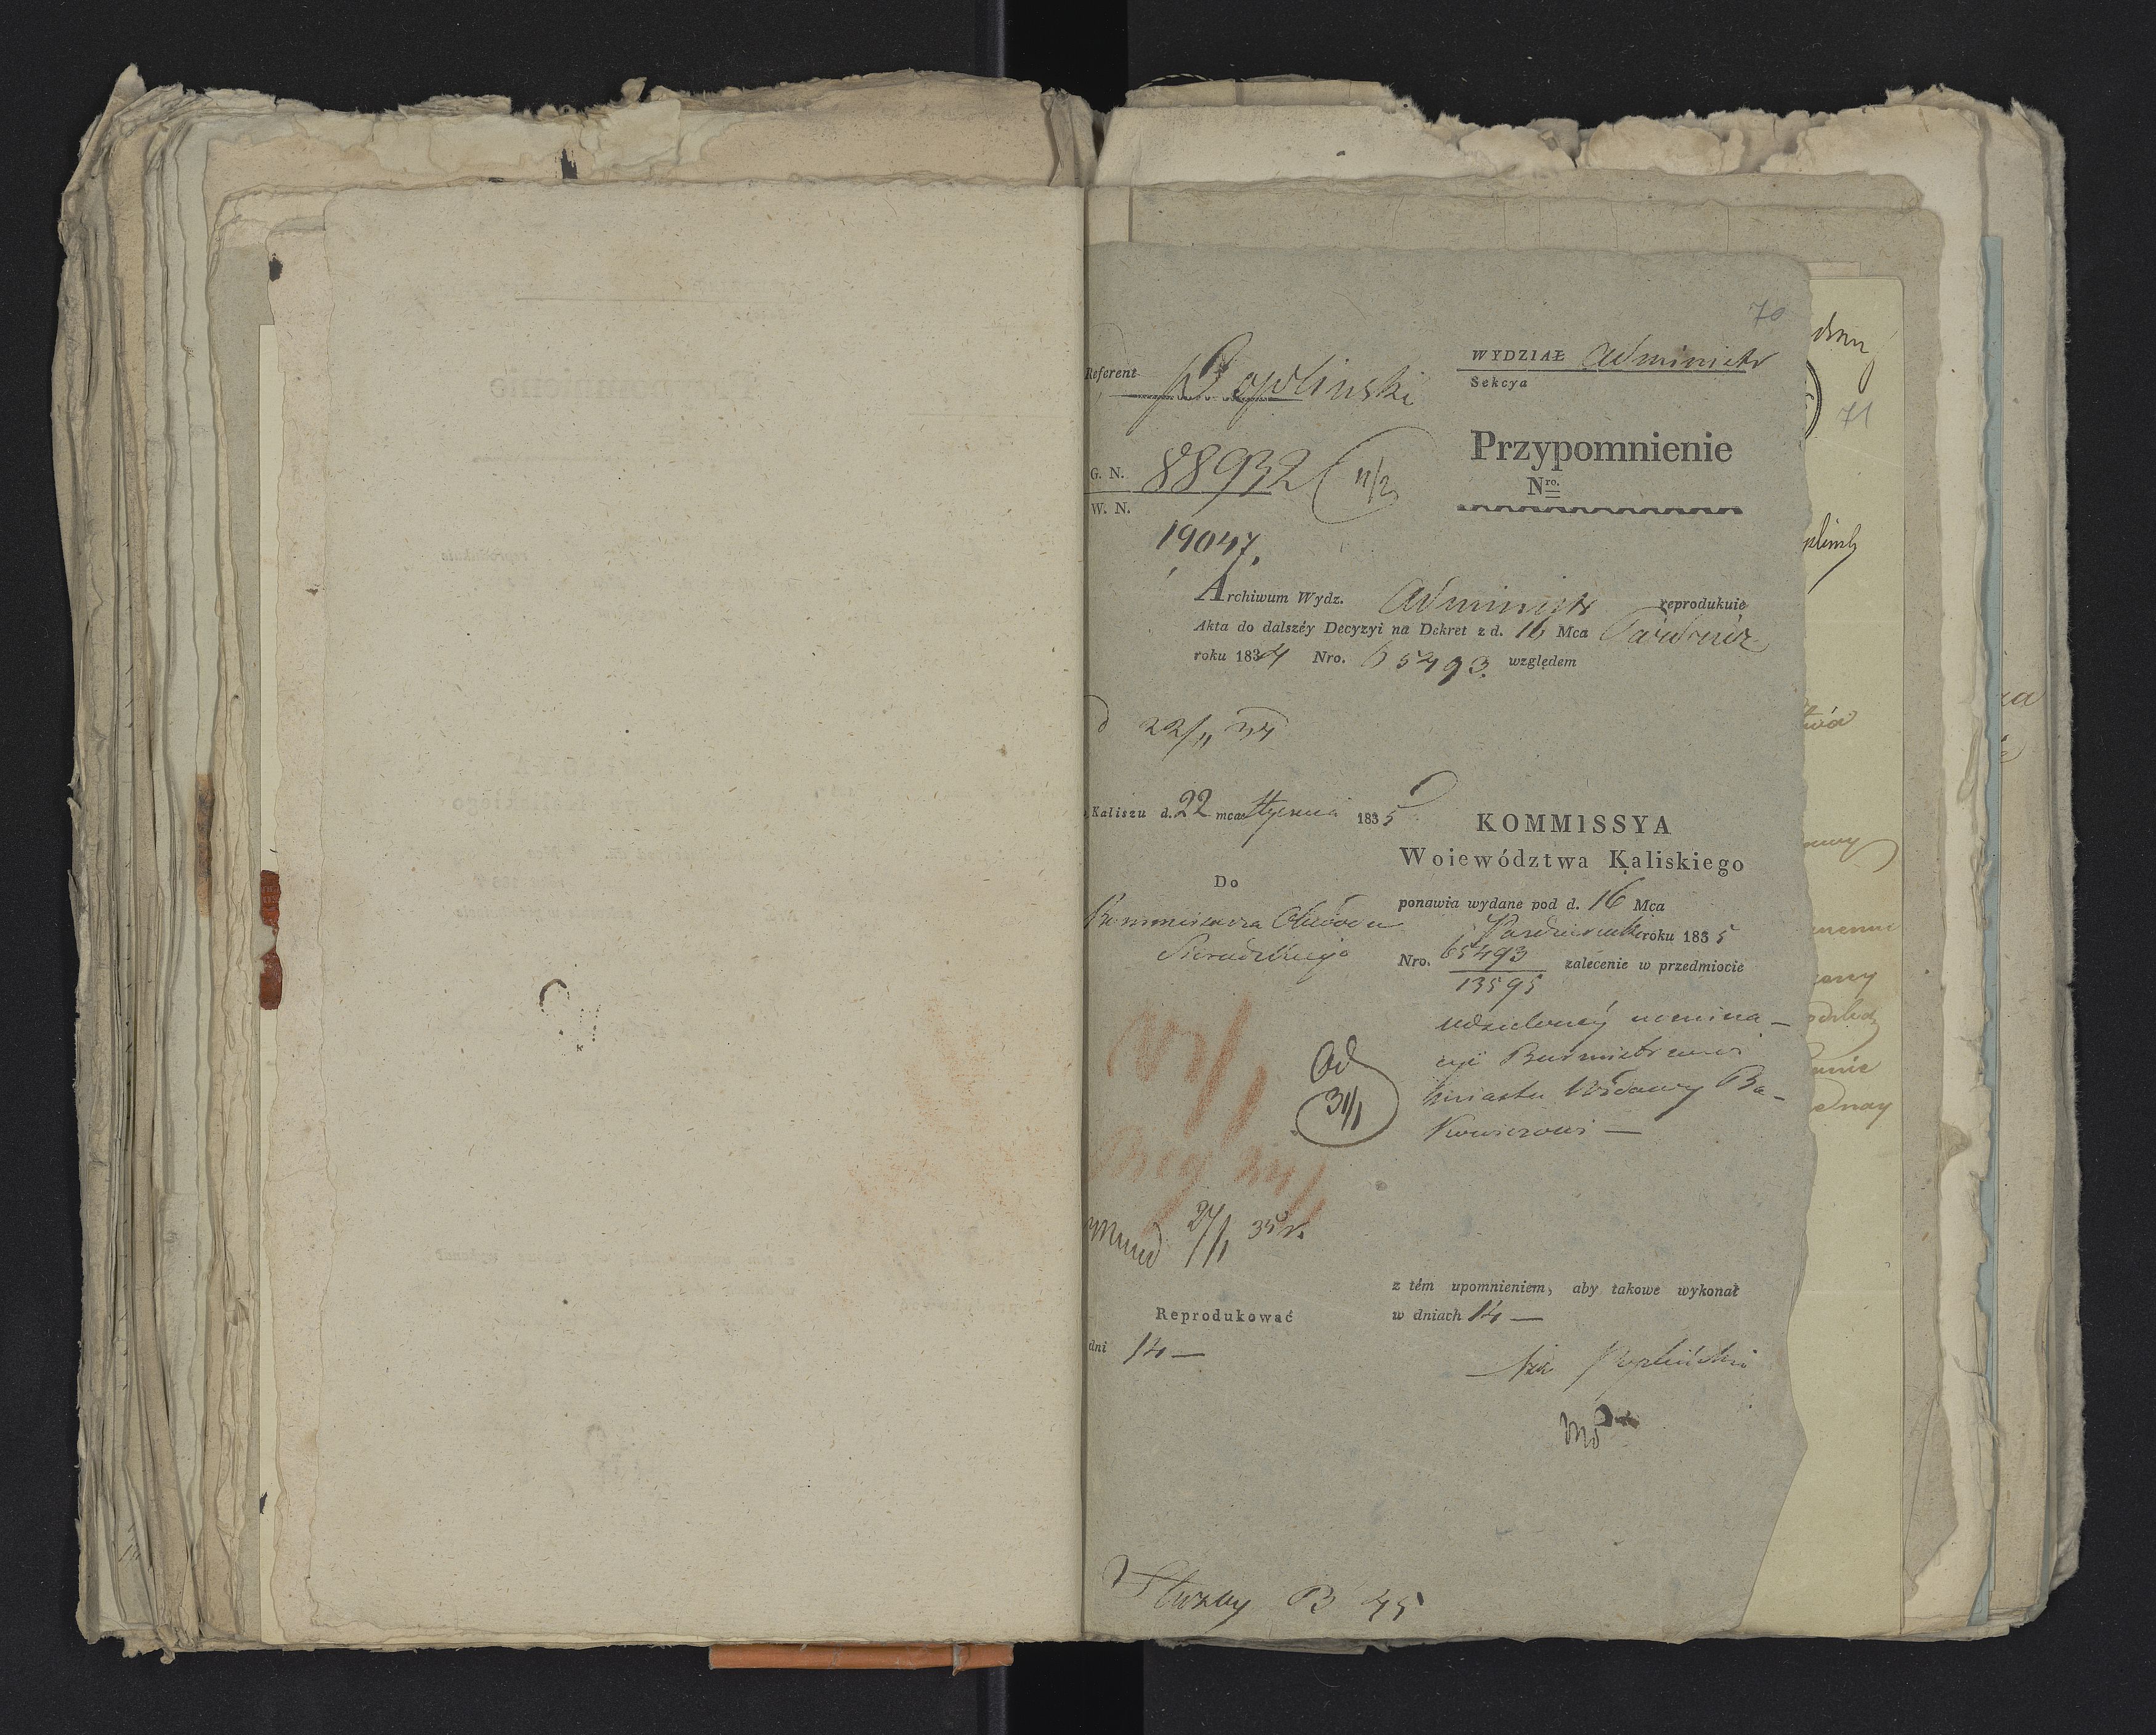 70
Referent Poplinski
WYDZIAŁ Administr
Sekcya
G. N. 88932
W. N.
19047.
Przypomnienie
Nro.
Archiwum Wydz. Administr reprodukuie
Akta do dalszéy Decyzyi na Dekret z d. 16 Mca Paźdnier
roku 1834 Nro. 65493. względem
22/11 34
Kaliszu d. 22 mca Stycznia 1835
Do
Kommissarza Obwodu
Sieradzkiego
KOMMISSYA
Woiewództwa Kaliskiego
ponawia wydane pod d. 16 Mca
Październik roku 1835
Nro. 65493
13595
zalecenie w przedmiocie
udzieloney nomina-
cyi Burmistrzowi
miasta Widawy Ba-
Kowiczowi —
Od
31/1
Mund 27/1 35 r.
z tém upomnieniem, aby takowe wykonał
w dniach 14 —
Reprodukować
dni 14 —
Popliński
45
71